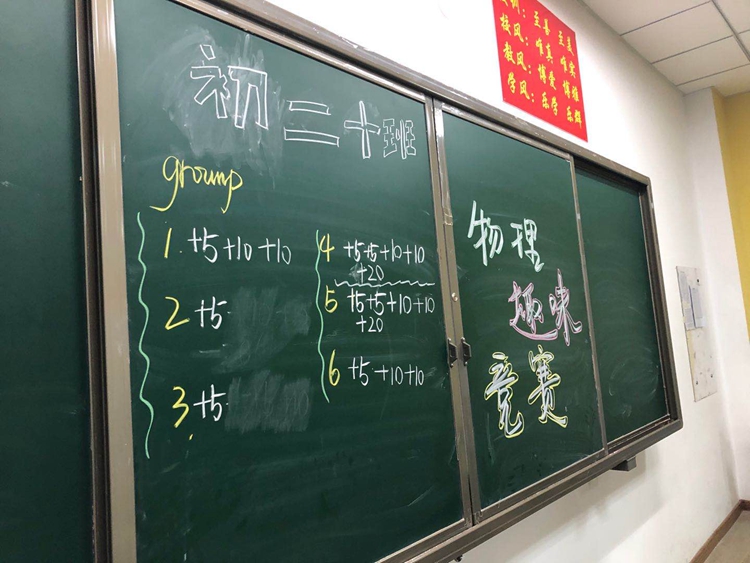 初二十班
group
1. +5+10+10
2 +5
3. +5
4 +5+5+10+10
+20
5 +5+5+10+10
+20
6 +5+10+10
物理
趣味
竞赛
校训：至善 至美
校风：唯真 唯实
教风：博爱 博雅
学风：乐学 乐群